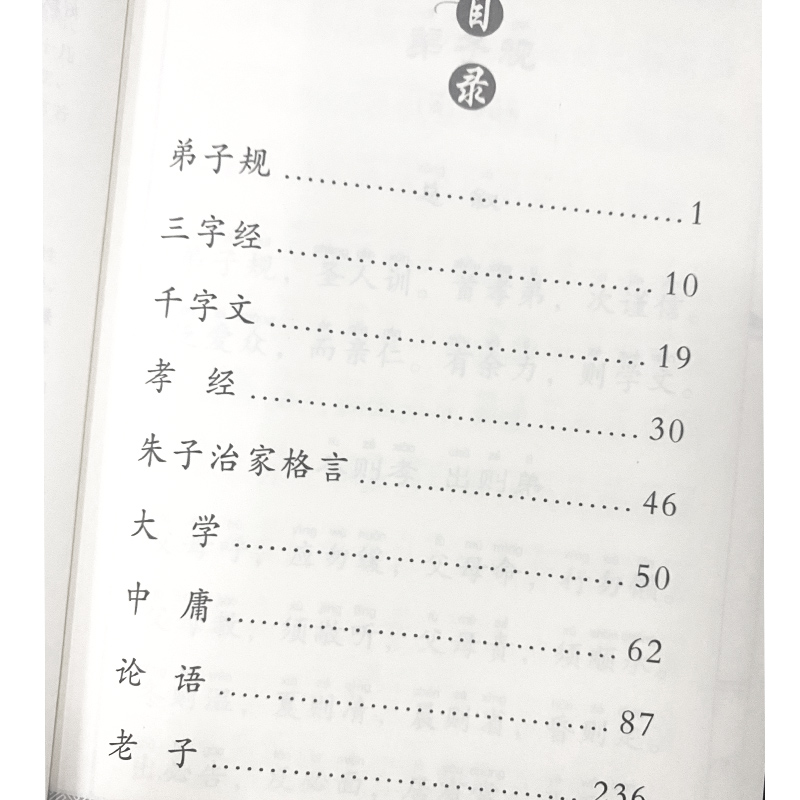 目
录
弟子规……………………………………1
三字经……………………………………10
千字文……………………………………19
孝 经……………………………………30
朱子治家格言……………………………46
大 学……………………………………50
中 庸……………………………………62
论 语……………………………………87
老 子……………………………………236